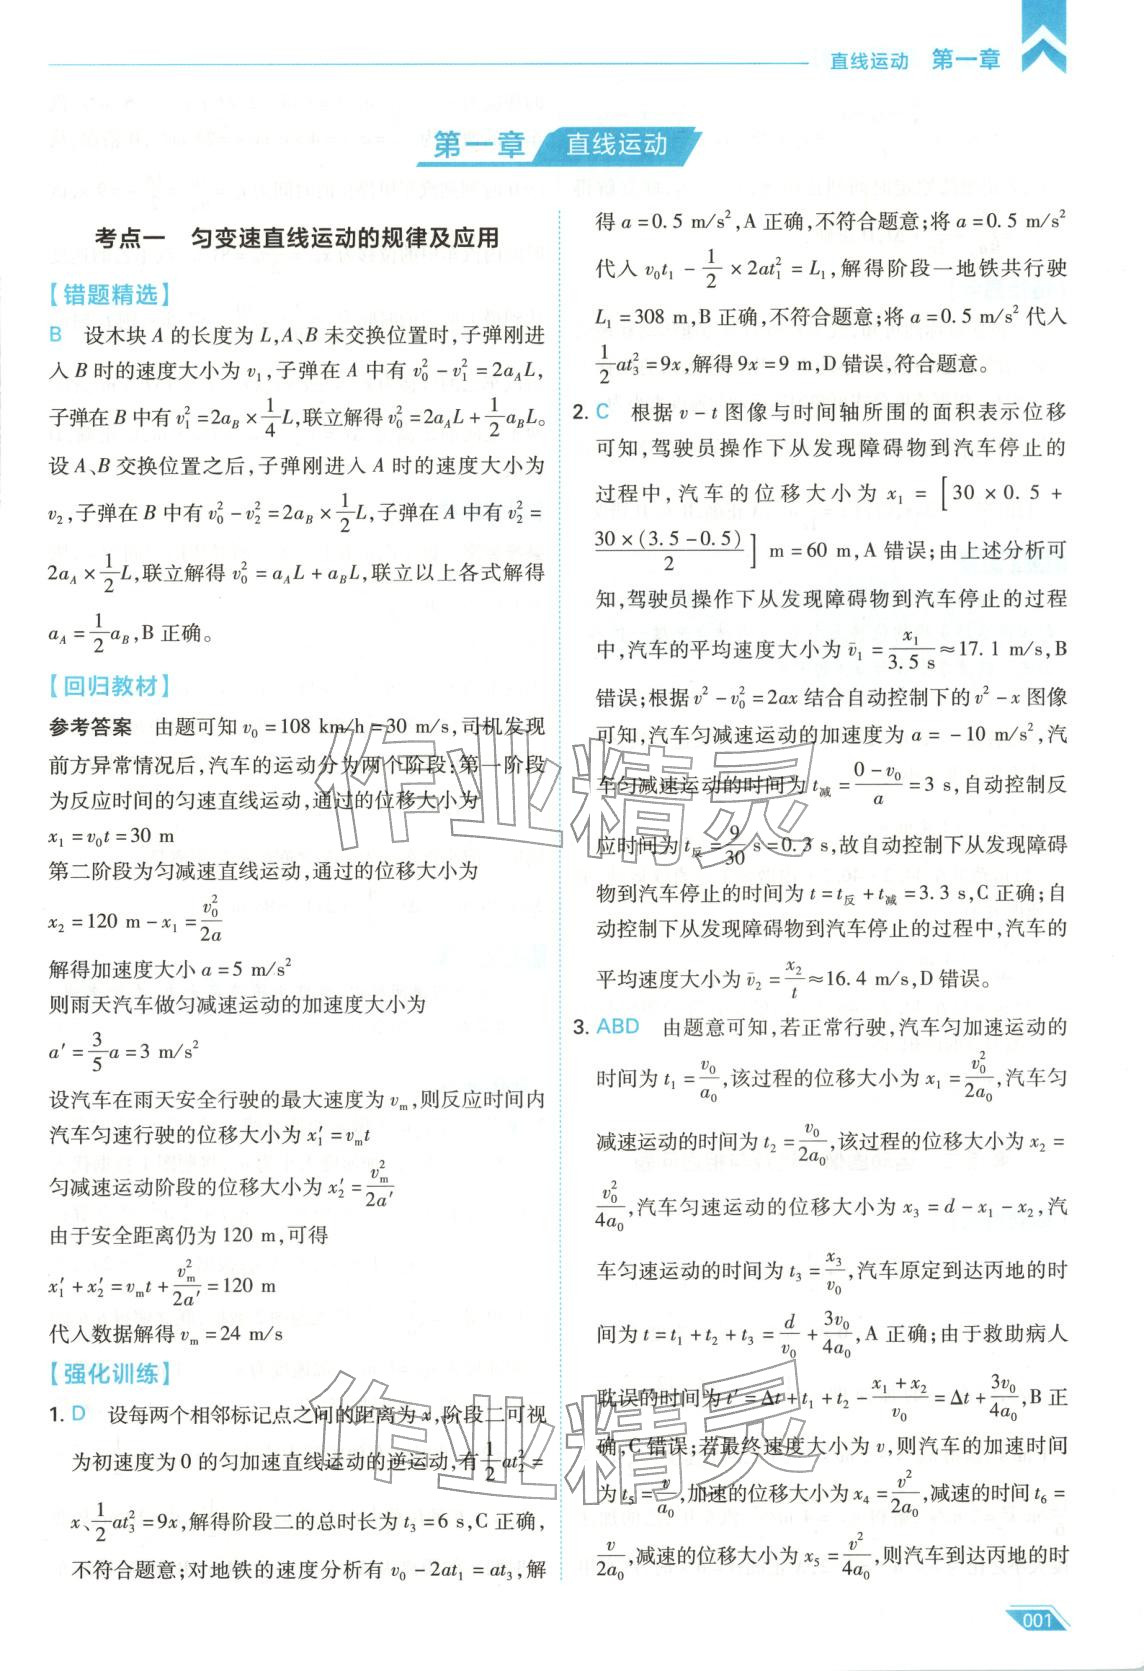 直线运动 第一章
第一章 直线运动
考点一 匀变速直线运动的规律及应用
【错题精选】
B 设木块 A 的长度为 L,A、B 未交换位置时,子弹刚进
入 B 时的速度大小为 v₁,子弹在 A 中有 v₀²－v₁²＝2a_A L,
子弹在 B 中有 v₁²＝2a_B×1/4 L,联立解得 v₀²＝2a_A L＋1/2 a_B L。
设 A、B 交换位置之后,子弹刚进入 A 时的速度大小为
v₂,子弹在 B 中有 v₀²－v₂²＝2a_B×1/2 L,子弹在 A 中有 v₂²＝
2a_A×1/2 L,联立解得 v₀²＝a_A L＋a_B L,联立以上各式解得
a_A＝1/2 a_B,B 正确。
【回归教材】
参考答案 由题可知 v₀＝108 km/h＝30 m/s,司机发现
前方异常情况后,汽车的运动分为两个阶段;第一阶段
为反应时间的匀速直线运动,通过的位移大小为
x₁＝v₀t＝30 m
第二阶段为匀减速直线运动,通过的位移大小为
x₂＝120 m－x₁＝v₀²/2a
解得加速度大小 a＝5 m/s²
则雨天汽车做匀减速运动的加速度大小为
a′＝3/5 a＝3 m/s²
设汽车在雨天安全行驶的最大速度为 v_m,则反应时间内
汽车匀速行驶的位移大小为 x₁′＝v_m t
匀减速运动阶段的位移大小为 x₂′＝v_m²/2a′
由于安全距离仍为 120 m,可得
x₁′＋x₂′＝v_m t＋v_m²/2a′＝120 m
代入数据解得 v_m＝24 m/s
【强化训练】
1. D 设每两个相邻标记点之间的距离为 x,阶段二可视
为初速度为 0 的匀加速直线运动的逆运动,有 1/2 at₂²＝
x、1/2 at₃²＝9x,解得阶段二的总时长为 t₃＝6 s,C 正确,
不符合题意;对地铁的速度分析有 v₀－2at₁＝at₃,解
得 a＝0.5 m/s²,A 正确,不符合题意;将 a＝0.5 m/s²
代入 v₀t₁－1/2×2at₁²＝L₁,解得阶段一地铁共行驶
L₁＝308 m,B 正确,不符合题意;将 a＝0.5 m/s² 代入
1/2 at₃²＝9x,解得 9x＝9 m,D 错误,符合题意。
2. C 根据 v－t 图像与时间轴所围的面积表示位移
可知,驾驶员操作下从发现障碍物到汽车停止的
过程中,汽车的位移大小为 x₁＝[30×0.5＋
30×(3.5－0.5)/2] m＝60 m,A 错误;由上述分析可
知,驾驶员操作下从发现障碍物到汽车停止的过程
中,汽车的平均速度大小为 v̄₁＝x₁/3.5 s≈17.1 m/s,B
错误;根据 v²－v₀²＝2ax 结合自动控制下的 v²－x 图像
可知,汽车匀减速运动的加速度为 a＝－10 m/s²,汽
车匀减速运动的时间为 t减＝(0－v₀)/a＝3 s,自动控制反
应时间为 t反＝9/30 s＝0.3 s,故自动控制下从发现障碍
物到汽车停止的时间为 t＝t反＋t减＝3.3 s,C 正确;自
动控制下从发现障碍物到汽车停止的过程中,汽车的
平均速度大小为 v̄₂＝x₂/t≈16.4 m/s,D 错误。
3. ABD 由题意可知,若正常行驶,汽车匀加速运动的
时间为 t₁＝v₀/a₀,该过程的位移大小为 x₁＝v₀²/2a₀,汽车匀
减速运动的时间为 t₂＝v₀/2a₀,该过程的位移大小为 x₂＝
v₀²/4a₀,汽车匀速运动的位移大小为 x₃＝d－x₁－x₂,汽
车匀速运动的时间为 t₃＝x₃/v₀,汽车原定到达丙地的时
间为 t＝t₁＋t₂＋t₃＝d/v₀＋3v₀/4a₀,A 正确;由于救助病人
耽误的时间为 t′＝Δt＋t₁＋t₂－(x₁＋x₂)/v₀＝Δt＋3v₀/4a₀,B 正
确,C 错误;若最终速度大小为 v,则汽车的加速时间
为 t₅＝v/a₀,加速的位移大小为 x₄＝v²/2a₀,减速的时间 t₆＝
v/2a₀,减速的位移大小为 x₅＝v²/4a₀,则汽车到达丙地的时
001
作业精灵
作业精灵